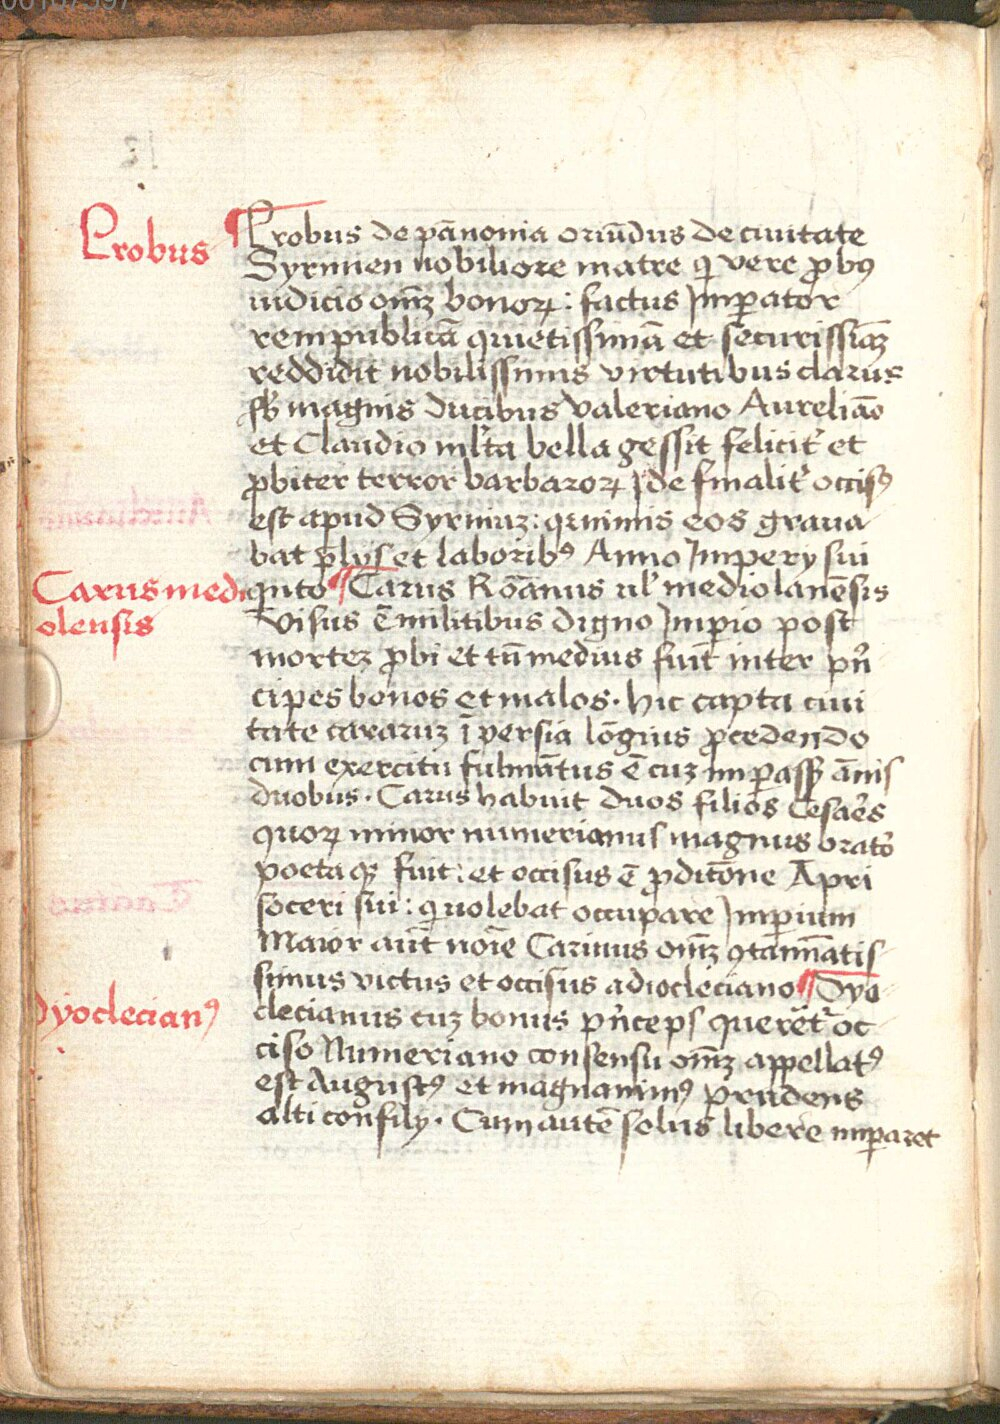 Probus
¶ Probus de pānonia oriūdus de ciuitate
Syrmien nobiliore matre qi vere ꝓbꝰ
iudicio om̄ꝫ bonoꝝ : factus Imꝑator
rem publicā quietissimā et securissiāꝫ
reddidit nobilissimis virtutibus clarus
sb̄ magnis ducibus Valeriano Aureliāo
et Claudio ml̄ta bella gessit felicit᷑ et
ꝓbiter terror barbaroꝝ Ide finalit᷑ occisꝰ
est apud Syrmiuꝫ : qꝛ nimis eos graua
bat p̄lijs et laboribꝰ Anno Impery sui
qinto ¶ Carus Rōanus ul᷑ mediolanēsis
Carus medi
olensis
Visus ē militibus digno Imꝑio post
morteꝫ ꝓbi et tn̄ medius fuit inter pn̄
cipes bonos et malos · hic capta ciui
tate cararuꝫ ī persia lōgius ꝓcedendo
cum exercitu fulmātus ē cuꝫ imꝑassꝫ ānis
duobus · Carus habuit duos filios Cesaēs
quoꝝ minor numerianus magnus orato᷑
poeta qꝫ fuit : et occisus ē ꝓditōne Apri
soceri sui : qi uolebat occupare Imꝑium
Maior aut̄ noīe Carinus om̄ꝫ ꝯtāmīatis
simus victus et occisus a diocleciano ¶ Dyo
Dyoclecianꝰ
clecianus cuꝫ bonus pn̄ceps querēt᷑ oc
ciso Numeriano consensu om̄ꝫ appellatꝰ
est Augustꝰ et magnanimꝰ prudens
alti consily · Cum autē solus libere imꝑaret